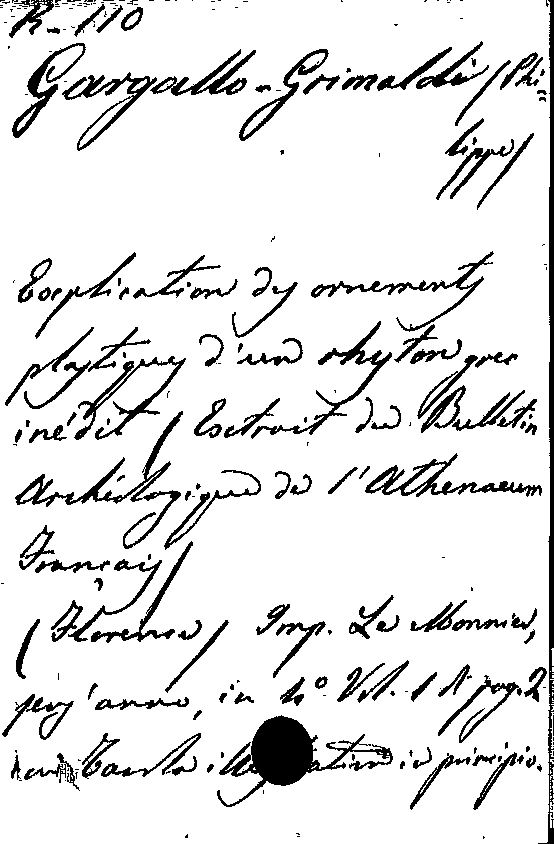 R-110
Gargallo-Grimaldi (Phi=
lippe)
Explication des ornements
plastiques d'un rhyton grec
inédit (Extrait du Bulletin
Archéologique de l'Athenaeum
Français)
(Florence) Imp. Le Monnier,
senz'anno, in 4° Vol. 1 di pag. 2
con Tavola in principio.